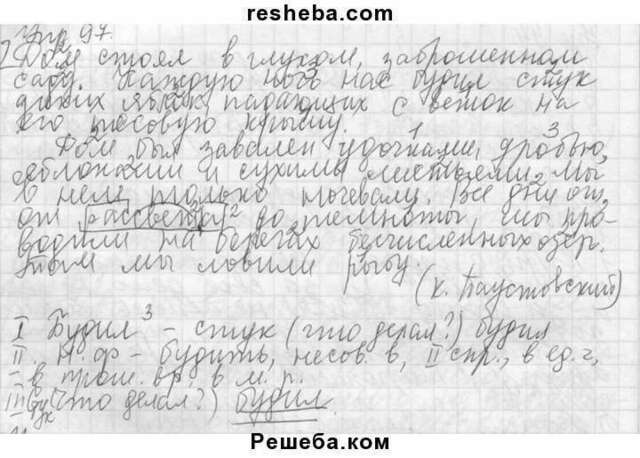 resheba.com
Упр 97.
Дом стоял в глухом, заброшенном
саду. Каждую ночь нас будил стук
диких яблок, падающих с веток на
его тесовую крышу.
Дом был завален удочками, дробью,
яблоками и сухими листьями. Мы
в нем только ночевали. Все дни
от рассвета² до темноты, мы про-
водили на берегах бесчисленных озер.
Там мы ловили рыбу.
(К. Паустовский)
I Будил³ – стук (что делал?) будил
II. Н. ф – будить, несов. в, II спр., в ед. ч,
в прош. вр, в м. р.
III (что делал?) будил.
Решеба.ком